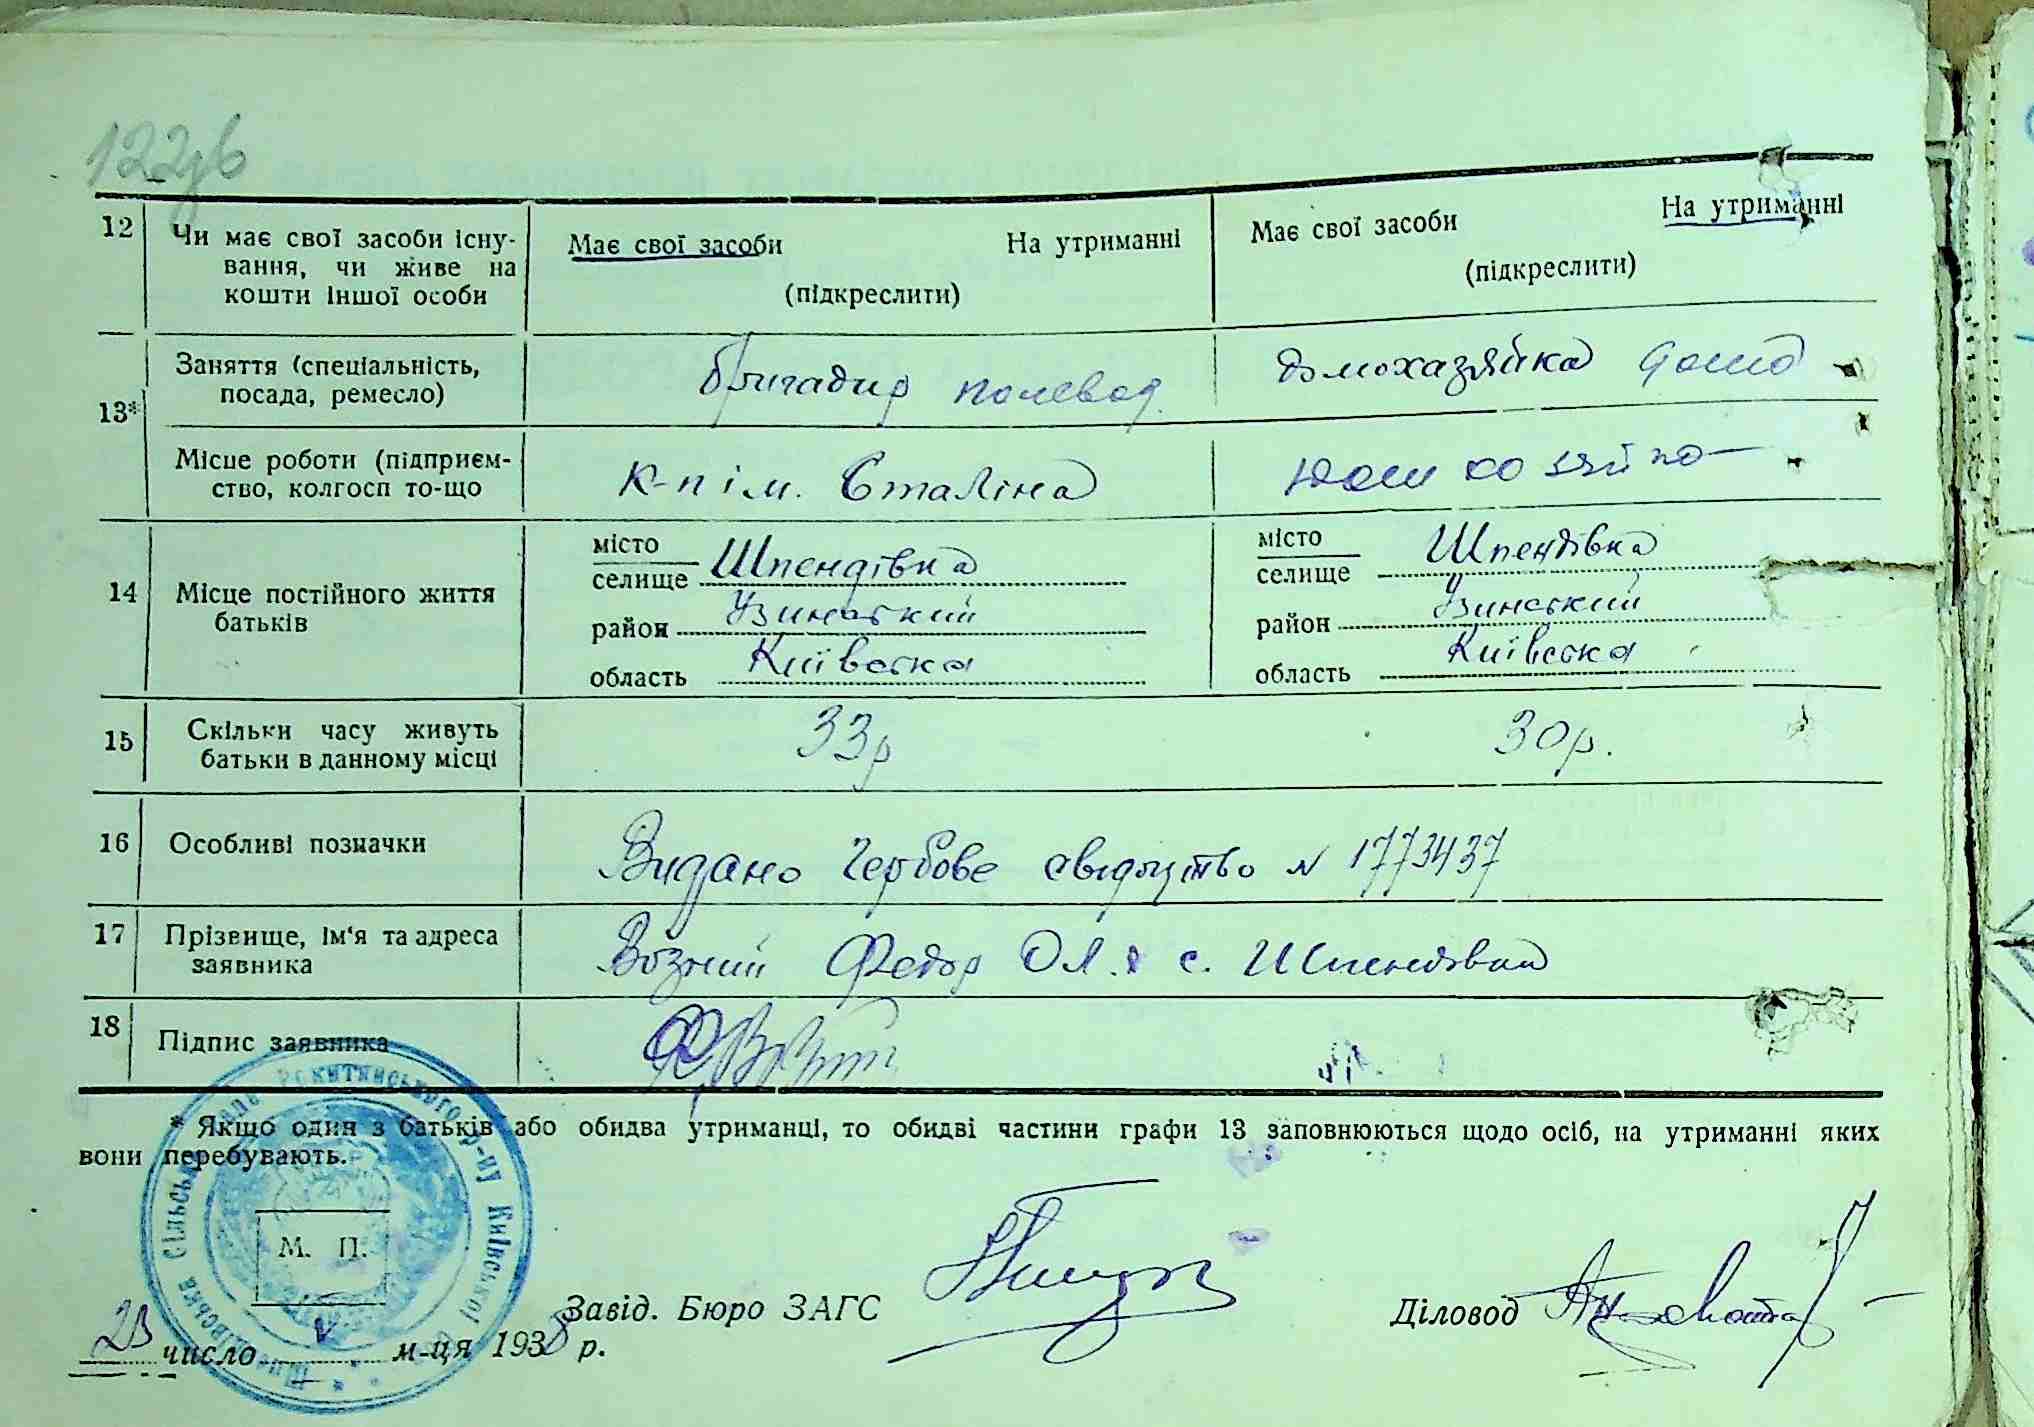 122зв
12 Чи має свої засоби існу- Має свої засоби На утриманні Має свої засоби На утриманні
вання, чи живе на (підкреслити) (підкреслити)
кошти іншої особи
13* Заняття (спеціальність, бригадир полевод домохазяйка
посада, ремесло)
Місце роботи (підприєм- к-п ім. Сталіна
ство, колгосп то-що
14 Місце постійного життя
батьків
місто
селище Шпендівка
район Узинський
область Київська
місто
селище Шпендівка
район Узинський
область Київська
15 Скільки часу живуть 33р 30р.
батьки в данному місці
16 Особливі позначки Видано гербове свідоцтво N 1773437
17 Прізвище, ім‘я та адреса Возний Федор Ол. с. Шпендівка
заявника
18 Підпис заявника
* Якщо один з батьків або обидва утриманці, то обидві частини графи 13 заповнюються щодо осіб, на утриманні яких
вони перебувають.
Сільська Рокитянського р-ну Київської
М. П.
Завід. Бюро ЗАГС Діловод
23 число V м-ця 1938 р.